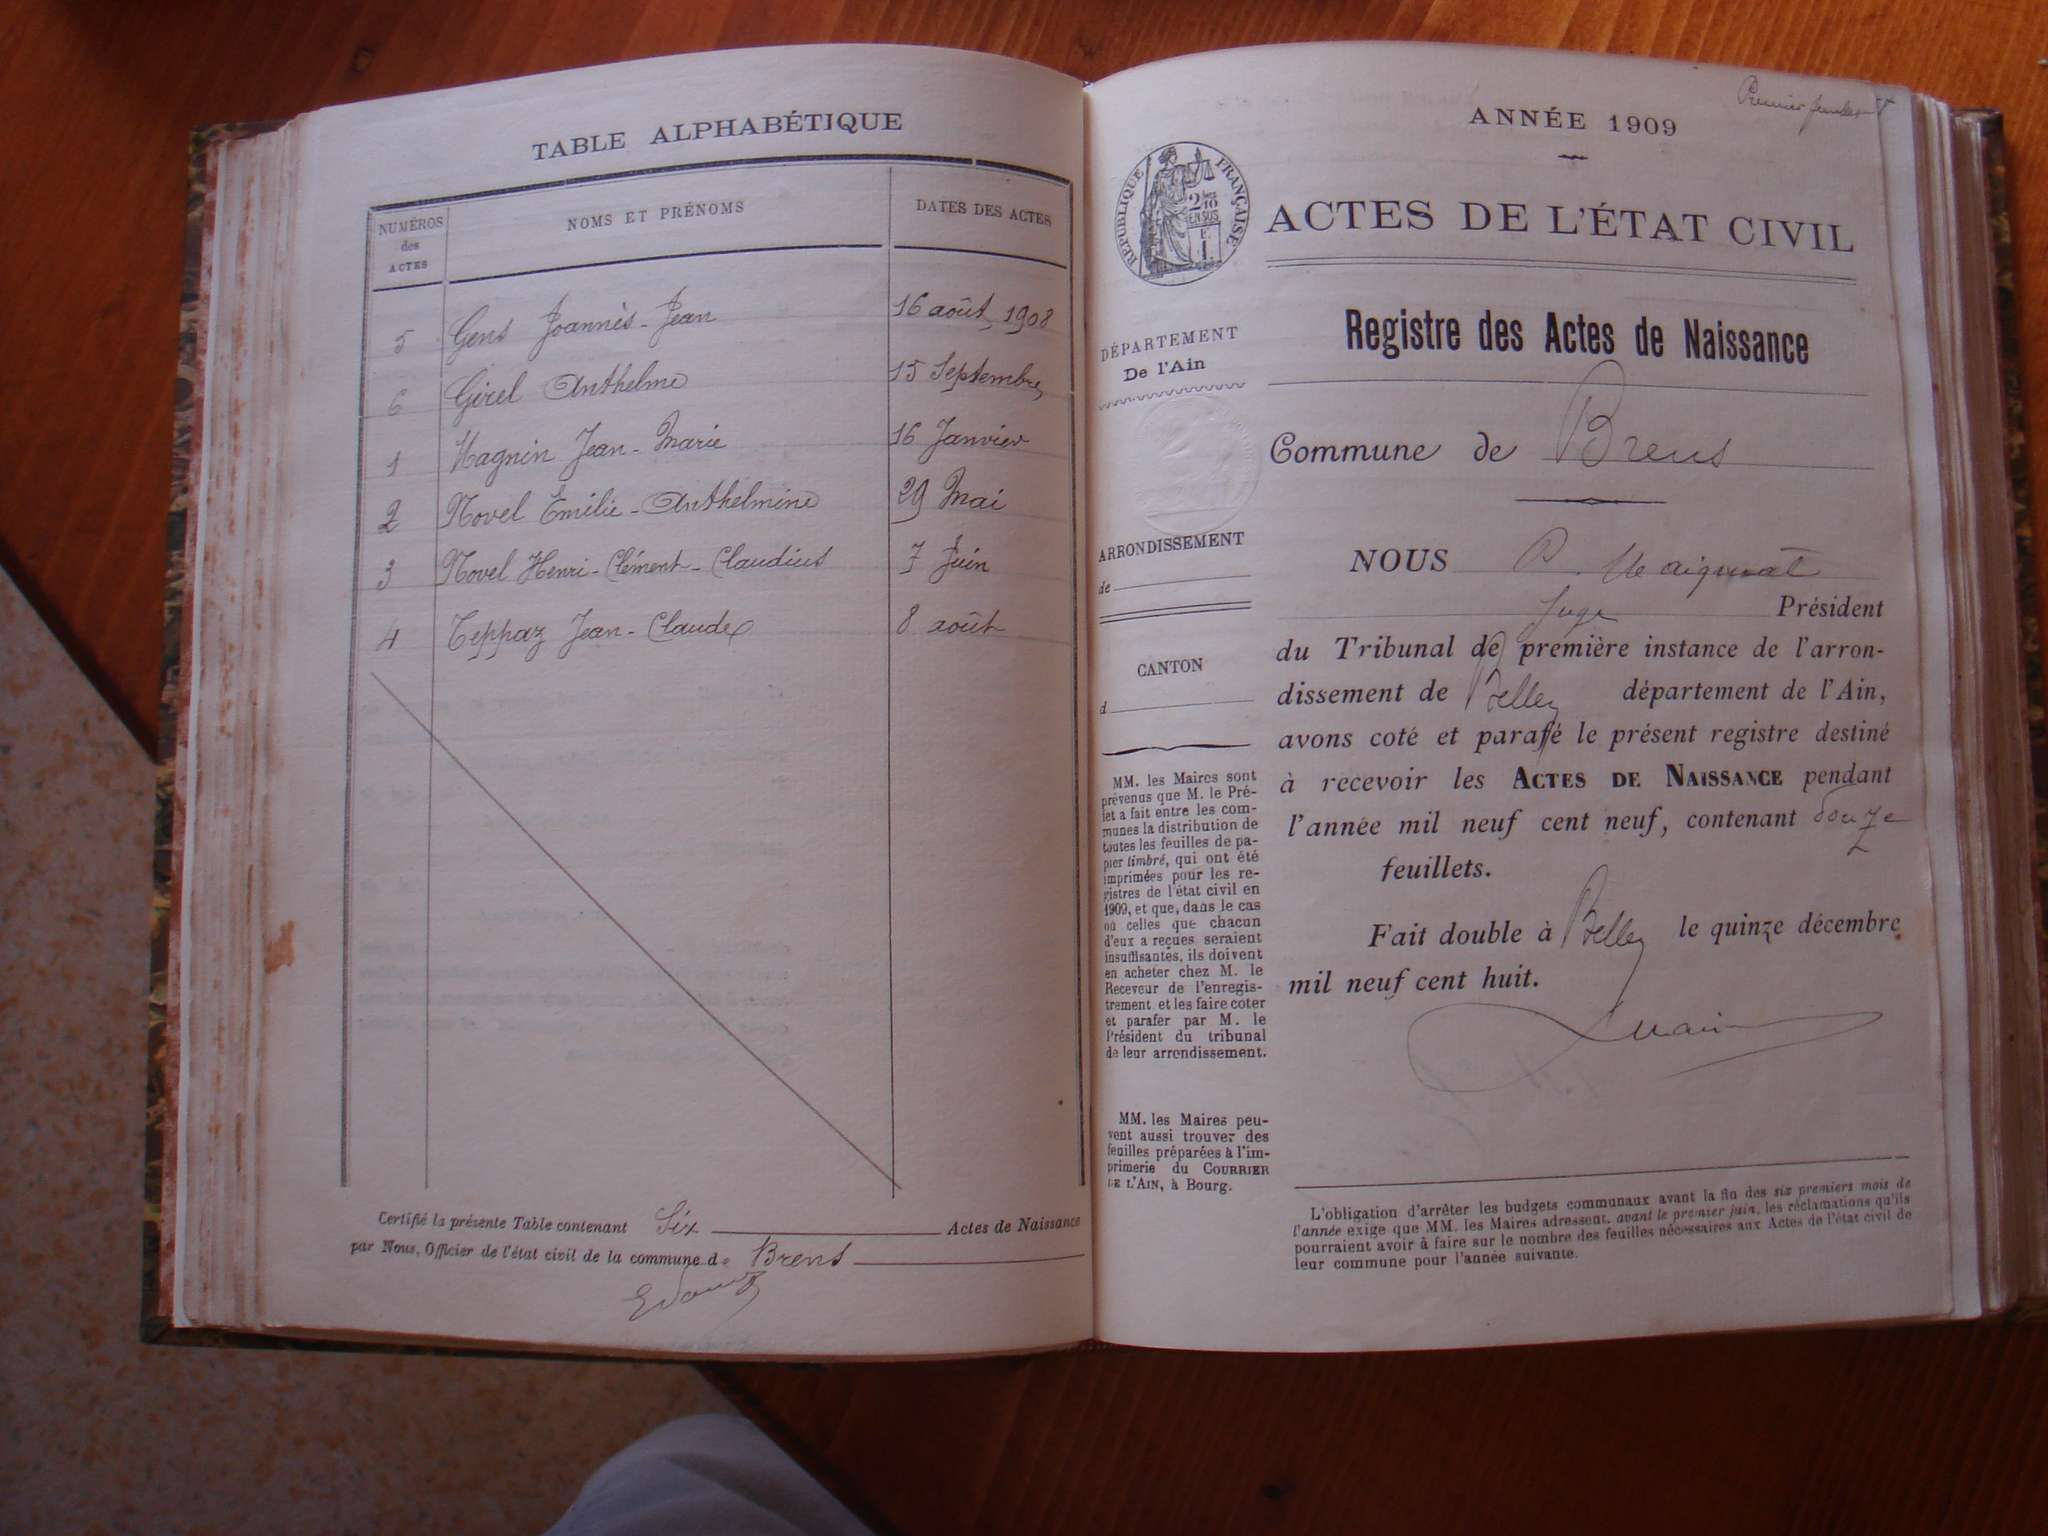 TABLE ALPHABÉTIQUE
NUMÉROS des ACTES
NOMS ET PRÉNOMS
DATES DES ACTES
5 Gens Joannès-Jean 16 août, 1908
6 Girel Anthelme 15 Septembre
1 Magnin Jean-Marie 16 Janvier
2 Novel Emilie-Anthelmine 29 Mai
3 Novel Henri-Clément-Claudius 7 Juin
4 Teppaz Jean-Claude 8 août
Certifié la présente Table contenant Six Actes de Naissance
par Nous, Officier de l'état civil de la commune de Brens
Premier feuillet
ANNÉE 1909
RÉPUBLIQUE FRANÇAISE
2/10
EN SUS
ACTES DE L'ÉTAT CIVIL
DÉPARTEMENT
De l'Ain
ARRONDISSEMENT
de
CANTON
d
MM. les Maires sont
prévenus que M. le Pré-
fet a fait entre les com-
munes la distribution de
toutes les feuilles de pa-
pier timbré, qui ont été
imprimées pour les re-
gistres de l'état civil en
1909, et que, dans le cas
où celles que chacun
d'eux a reçues seraient
insuffisantes, ils doivent
en acheter chez M. le
Receveur de l'enregis-
trement et les faire coter
et parafer par M. le
Président du tribunal
de leur arrondissement.
MM. les Maires peu-
vent aussi trouver des
feuilles préparées à l'im-
primerie du COURRIER
DE L'AIN, à Bourg.
Registre des Actes de Naissance
Commune de Brens
NOUS
Juge Président
du Tribunal de première instance de l'arron-
dissement de Belley département de l'Ain,
avons coté et parafé le présent registre destiné
à recevoir les ACTES DE NAISSANCE pendant
l'année mil neuf cent neuf, contenant douze
feuillets.
Fait double à Belley le quinze décembre
mil neuf cent huit.
L'obligation d'arrêter les budgets communaux avant la fin des six premiers mois de
l'année exige que MM. les Maires adressent, avant le premier juin, les réclamations qu'ils
pourraient avoir à faire sur le nombre des feuilles nécessaires aux Actes de l'état civil de
leur commune pour l'année suivante.